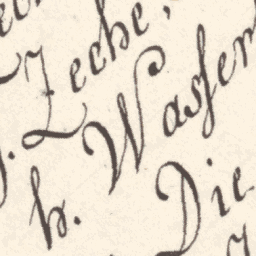 Zeche,
h. Wasser
Die